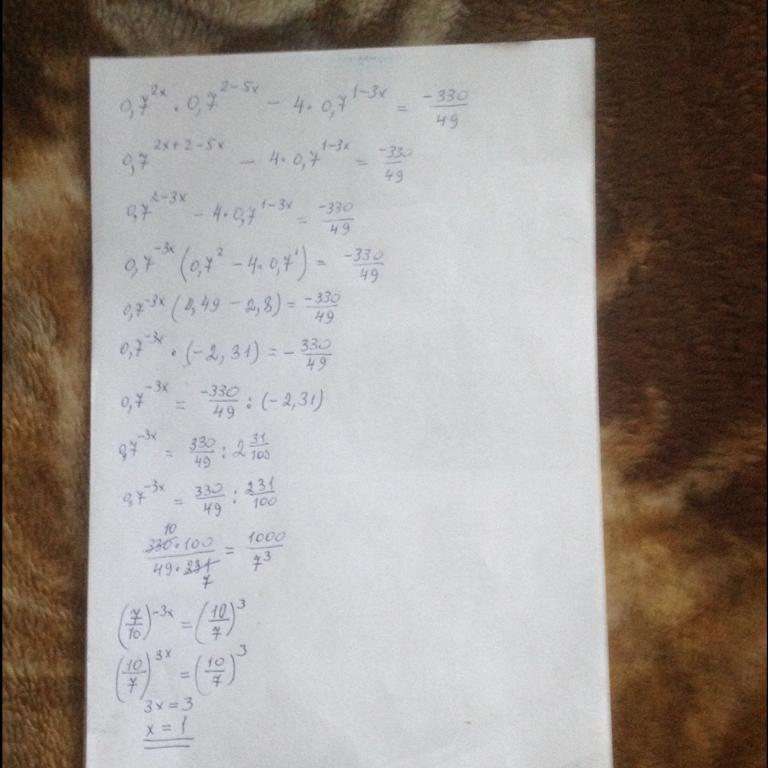 0,7^{2x} • 0,7^{2-5x} - 4 • 0,7^{1-3x} = \frac{-330}{49}
0,7^{2x+2-5x} - 4 • 0,7^{1-3x} = \frac{-330}{49}
0,7^{2-3x} - 4 • 0,7^{1-3x} = \frac{-330}{49}
0,7^{-3x} (0,7^2 - 4 • 0,7^1) = \frac{-330}{49}
0,7^{-3x} (0,49 - 2,8) = \frac{-330}{49}
0,7^{-3x} • (-2,31) = -\frac{330}{49}
0,7^{-3x} = \frac{-330}{49} : (-2,31)
0,7^{-3x} = \frac{330}{49} : 2\frac{31}{100}
0,7^{-3x} = \frac{330}{49} : \frac{231}{100}
\frac{\overset{10}{\cancel{330}} • 100}{49 • \underset{7}{\cancel{231}}} = \frac{1000}{7^3}
(\frac{7}{10})^{-3x} = (\frac{10}{7})^3
(\frac{10}{7})^{3x} = (\frac{10}{7})^3
3x = 3
x = 1